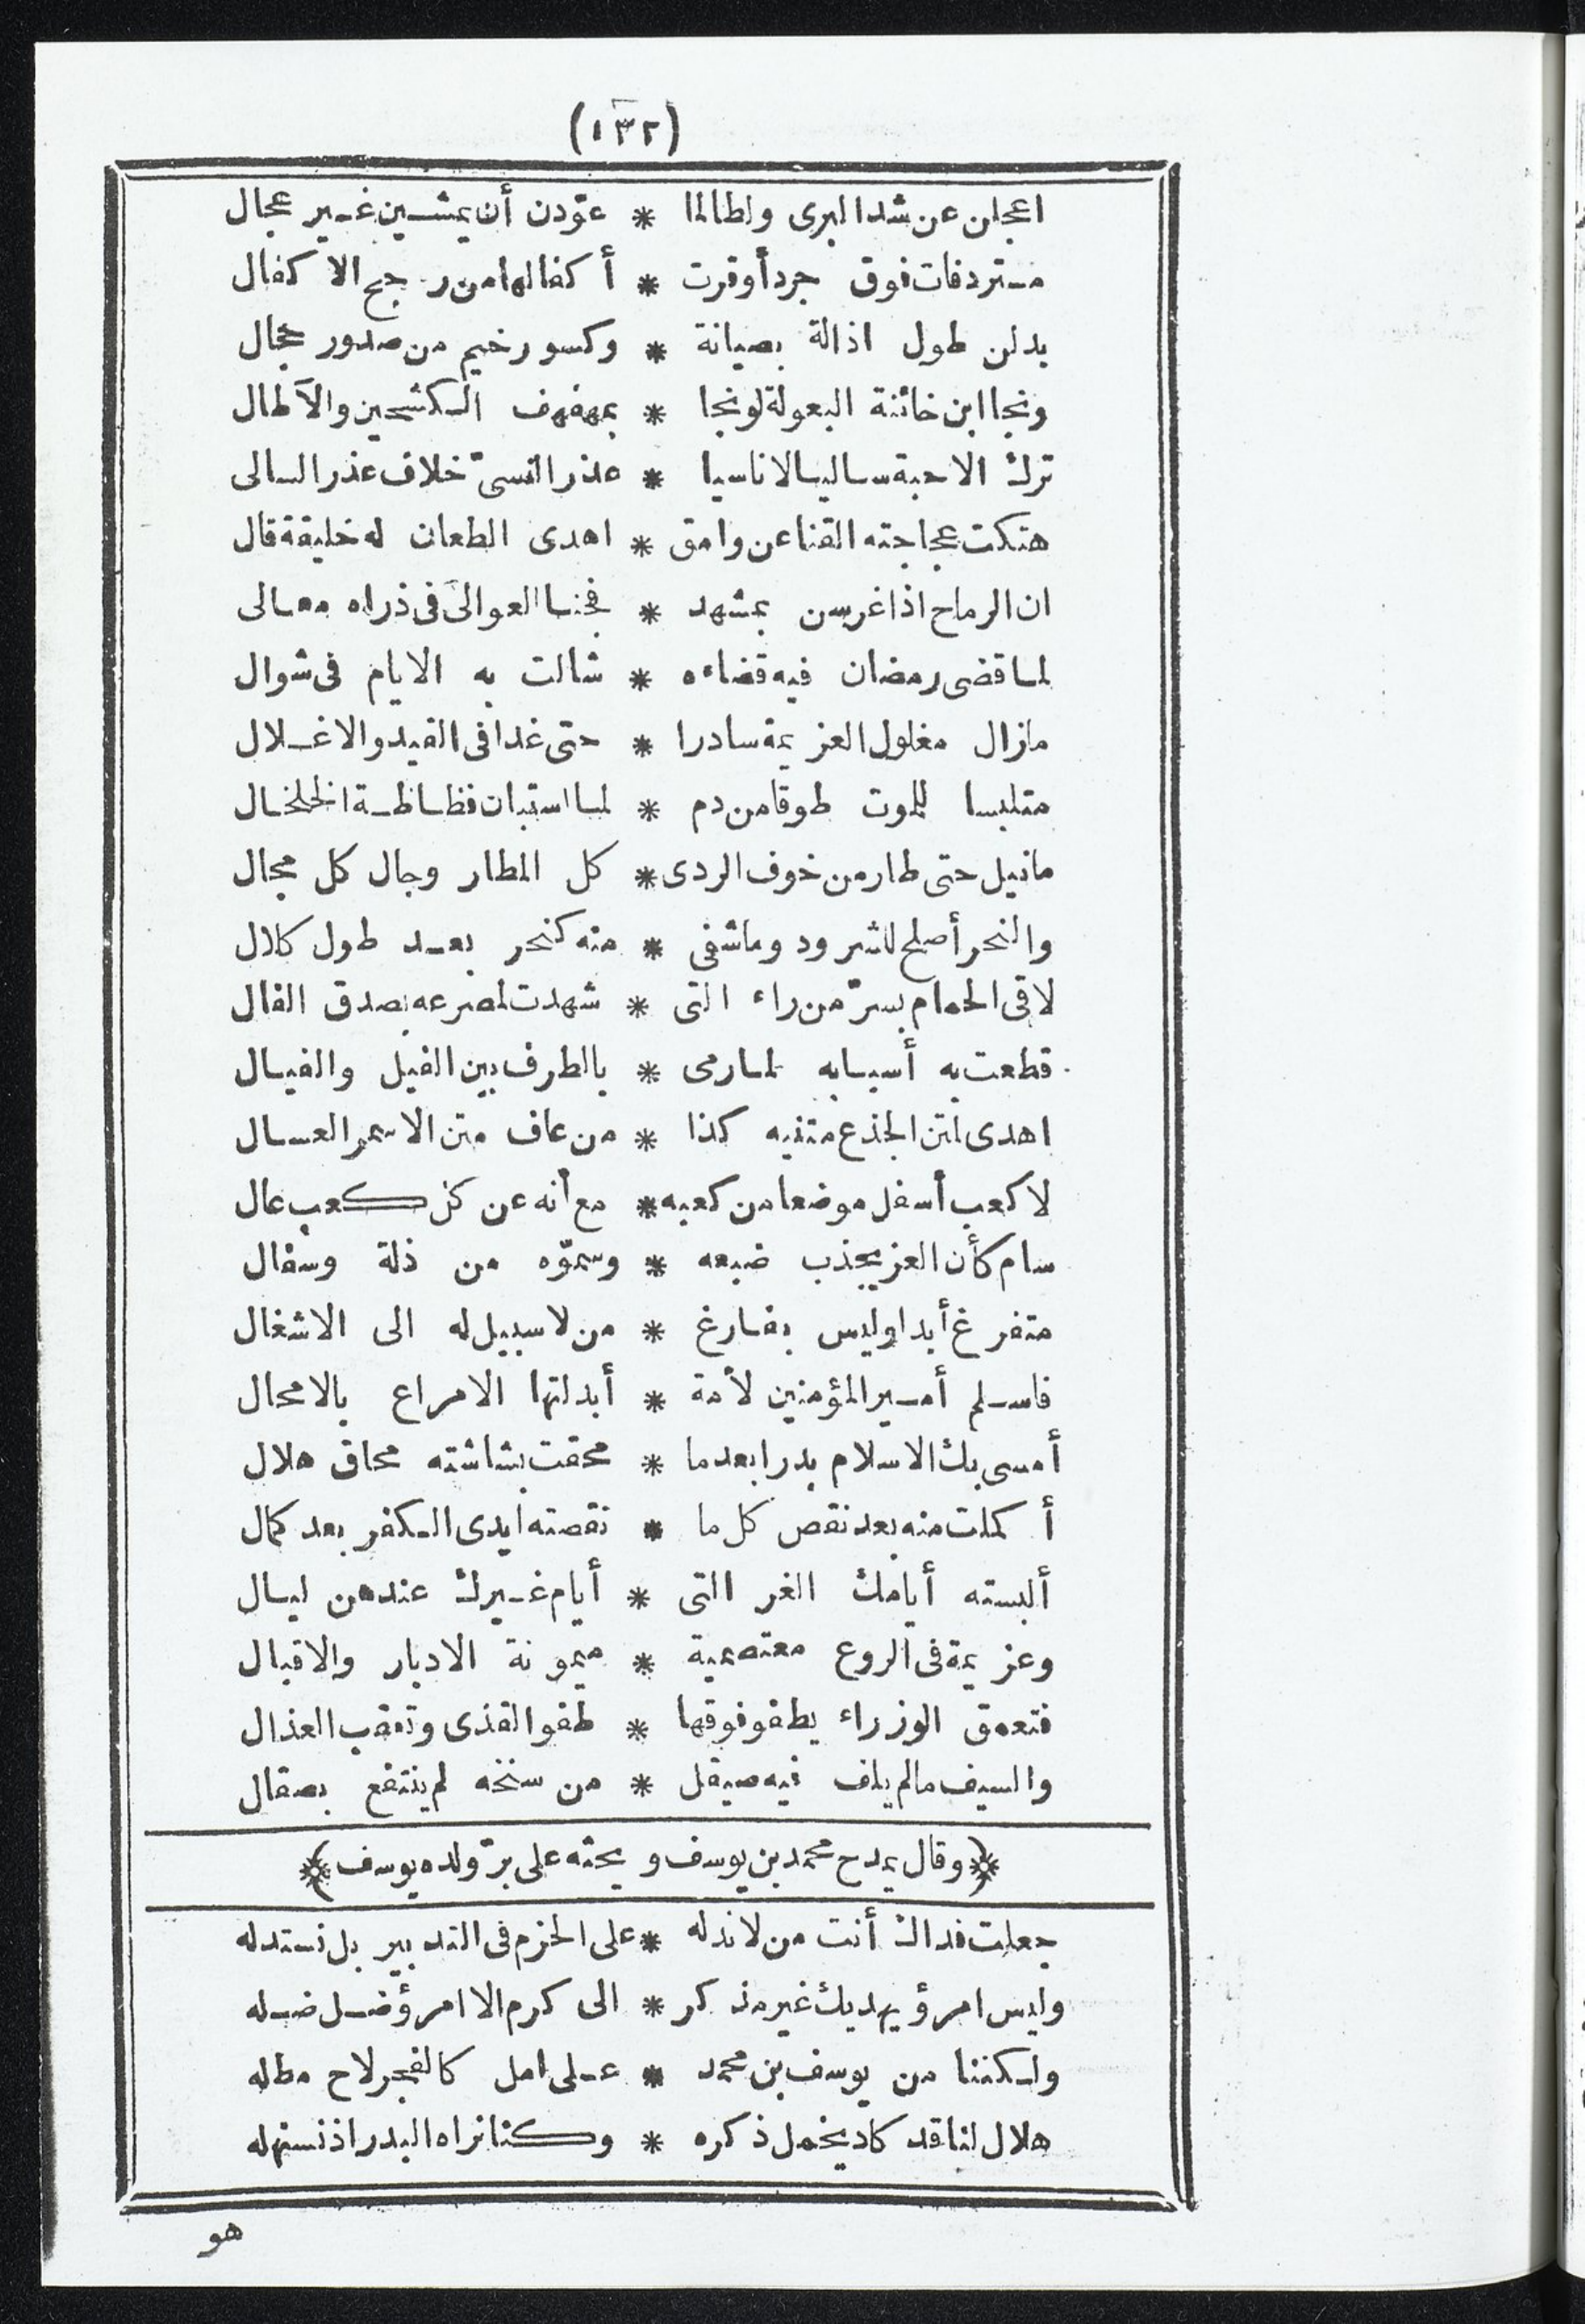 (١٣٢)
اعجلن عن شد البرى ولطالما * عوّدن أن يمشين غير عجال
مستردفات فوق جرد أوقرت * أكفالها من رجح الاكفال
بدلن طول اذالة بصيانة * وكسور خيم من صدور عجال
ونجا ابن خائنة البعولة لو نجا * بمهفهف الكشحين والآطال
ترك الاحبة ساليا لا ناسيا * عذر النسىّ خلاف عذر السالى
هتكت عجاجته القنا عن وامق * اهدى الطعان له خليقة قال
ان الرماح اذا غرسن بمشهد * فجنا العوالى فى ذراه معالى
لما قضى رمضان فيه قضاءه * شالت به الايام فى شوال
مازال مغلول العزيمة سادرا * حتى غدا فى القيد والاغلال
متلبسا للموت طوقا من دم * لما استبان فظاظة الخلخال
مانيل حتى طار من خوف الردى * كل المطار وجال كل مجال
والنحر أصلح للشرود وماشفى * منه كنحر بعد طول كلال
لاقى الحمام بسرّ من راء التى * شهدت لمصرعه بصدق الفال
قطعت به أسبابه لما رمى * بالطرف بين الفيل والفيال
اهدى لمتن الجذع متنيه كذا * من عاف متن الاسمر العسال
لا كعب أسفل موضعا من كعبه * مع أنه عن كل كعب عال
سام كأن العز يجذب ضبعه * وسموّه من ذلة وسفال
متفرغ أبدا وليس بفارغ * من لا سبيل له الى الاشغال
فاسلم أمير المؤمنين لأمة * أبدلتها الامراع بالامحال
أمسى بك الاسلام بدرا بعدما * محقت بشاشته محاق هلال
أكملت منه بعد نقص كل ما * نقصته ايدى الكفر بعد كمال
ألبسته أيامك الغر التى * أيام غيرك عندهن ليال
وعزيمة فى الروع معتصمية * ميمونة الادبار والاقبال
فتعمق الوزراء يطفو فوقها * طفو القذى وتعقب العذال
والسيف مالم يلف فيه صيقل * من سنخه لم ينتفع بصقال
﴿وقال يمدح محمد بن يوسف ويحثه على برّ ولده يوسف﴾
جعلت فداك أنت من لا ندله * على الحزم فى التدبير بل نستدله
وليس امرؤ يهديك غير مذكر * الى كرم الا امرؤ ضل ضله
ولكننا من يوسف بن محمد * على امل كالفجر لاح مطله
هلال لنا قد كاد يخمل ذكره * وكنا نراه البدر اذ نستهله
هو